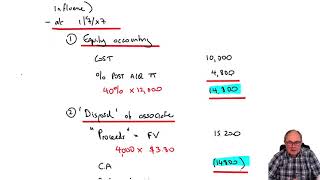 influence)
- at 1/7/x7
① Equity accounting
COST 10,000
% POST ACQ π 4,800
40% × 12,000 14,800
② 'Disposal' of associate
"Proceeds" = FV 15 200
4,000 × $3.80
C.A (14800)